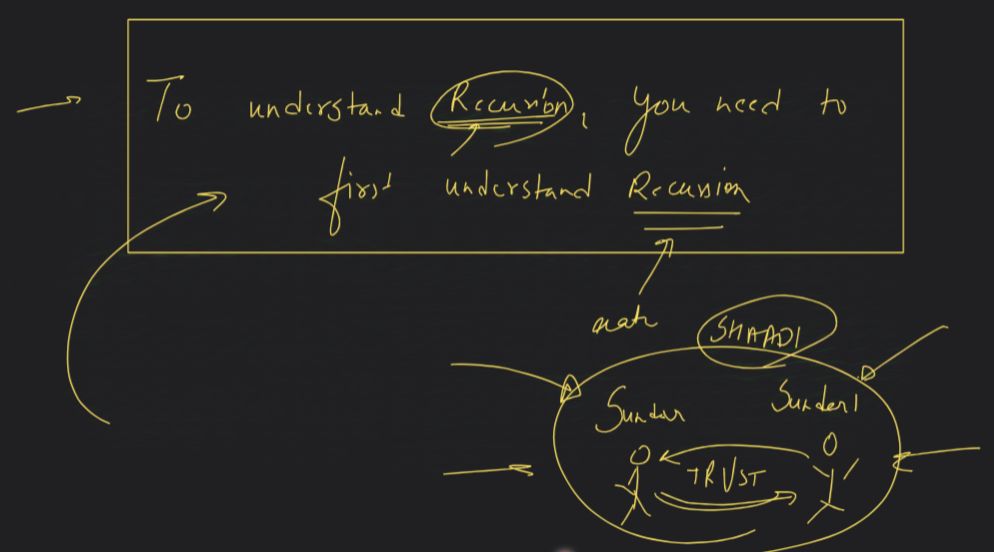 To understand Recursion, you need to
first understand Recursion
SHAADI
Sundar Sunderi
TRUST